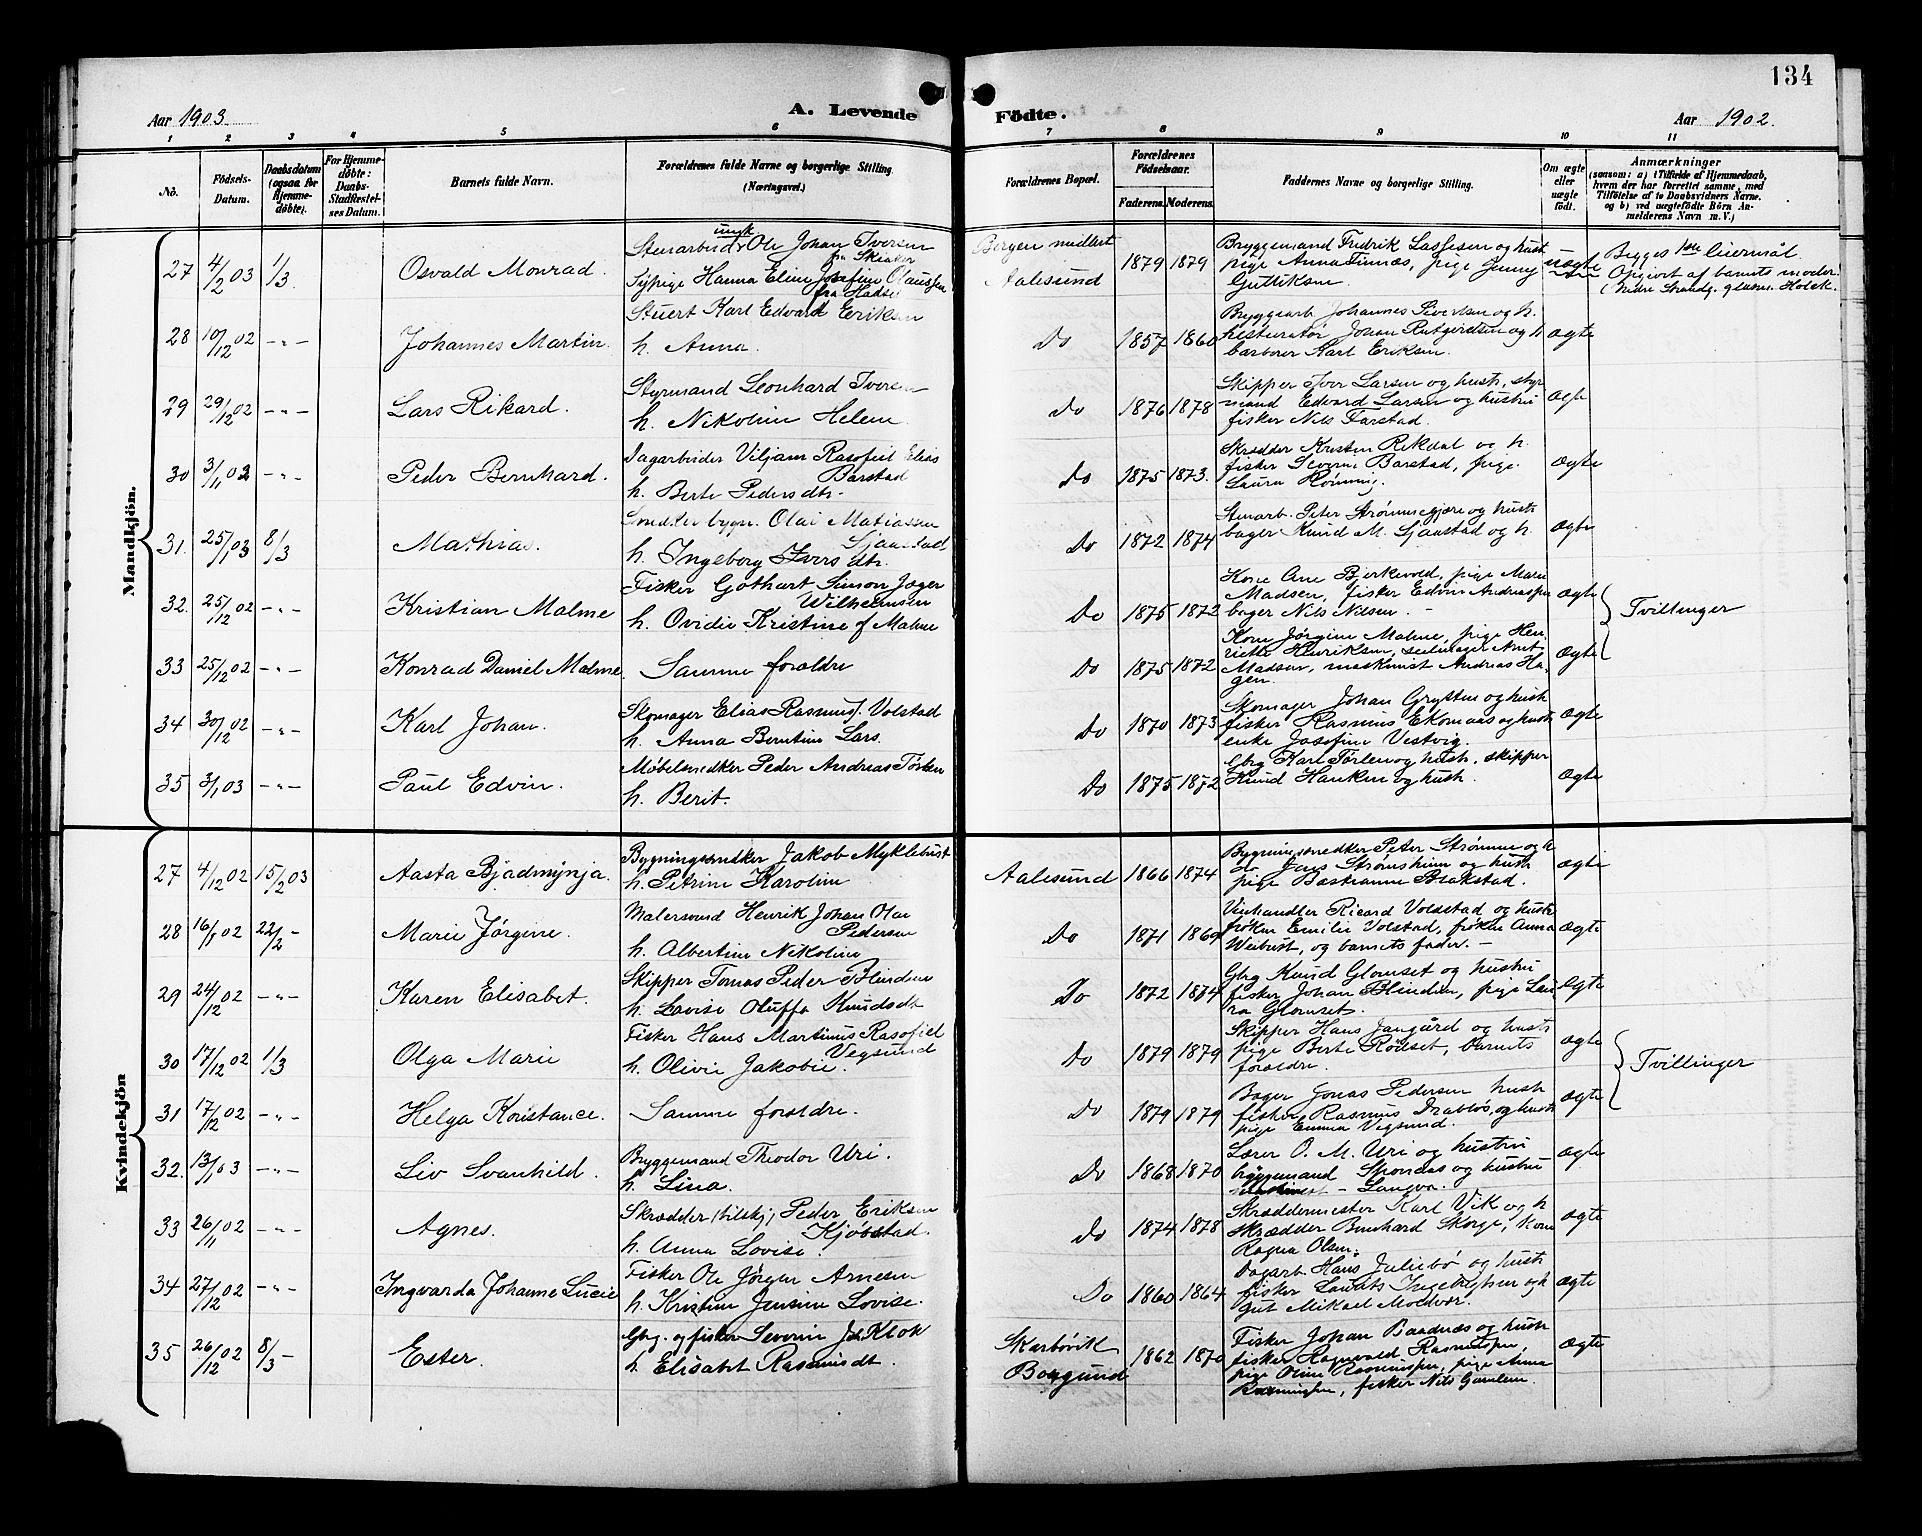 134
Aar 1903
A. Levende
Födte.
Aar 1902.
1 2 3 4 5 6 7 8 9 10 11
No.
Födsels-Datum.
Daabsdatum (ogsaa for Hjemme-döbte).
For Hjemme-döbte: Daabs-Stadfæstel-ses Datum.
Barnets fulde Navn.
Forældrenes fulde Navne og borgerlige Stilling. (Næringsvei.)
Forældrenes Bopæl.
Forældrenes Födselsaar.
Faderens. Moderens.
Faddernes Navne og borgerlige Stilling.
Om ægte eller uægte födt.
Anmærkninger
(saasom: a) i Tilfælde af Hjemmedaab,
hvem der har forrettet samme, med
Tilföielse af to Daabsvidners Navne.
og b) ved uægtefödte Börn An-
melderens Navn m. V.)
Mandkjön.
27 4/2 03 1/3. Osvald Monrad.
ungk
Stenarbeider Ole Johan Iversen
fra Skialer
Sypige Hanna Eline Josefine Olaussen
fra Hadsel
Bergen midlert
Aalesund
1879 1879
Bryggemand Fredrik Lassesen og hust
pige Anna Finnæs, pige Jenny
Guttiksen
uægte
Begges 1ste leiermål.
Opgivet af barnets moder.
28 10/12 02 -"- Johannes Martin.
Stuert Karl Edvard Eriksen
h. Anna.
Do 1857 1860
Bryggearb Johannes Sivertsen og h.
restauratør Johan Rutgersen og h
barberer Karl Eriksen.
ægte
29 29/12 02 -"- Lars Rikard.
Styrmand Leonhard Iversen
h. Nikoline Helene
Do 1876 1878
Skipper Iver Larsen og hustr, styr
mand Edvard Larsen og hustru
fisker Nils Farstad.
ægte
30 3/11 02 -"- Peder Bernhard.
Dagarbeider Viljam Rasofiel Elias
Barstad
h. Berte Pedersdtr.
Do 1875 1873.
Skrædder Kristen Rekdal og h.
fisker Severin Barstad, pige
Laura Hønning.
ægte
31. 25/1 03 8/3 Mathias.
Snedker bygn. Olai Matiassen
Sjaastad
h. Ingeborg Iversdtr.
Do 1872 1874
Stenarb. Peter Strømmegjære og hustr
bager Knud M. Sjaastad og h.
ægte
32. 25/12 02 -"- Kristian Malme
Fisker Gothart Simon Jæger
Wilhelmsen
h. Ovidie Kristine f Malme
Do 1875 1872
Kone Ane Bjerkevold, pige Marie
Madsen, fisker Edvin Andreassen
bager Nils Nilsen. -
ægte
Tvillinger
33 25/12 02 -"- Konrad Daniel Malme.
Samme forældre
Do 1875 1872
Kone Jørgine Malme, pige Hen
riette Henriksen, seilmager Arnt
Madsen, maskinist Andreas Ha-
gen.
ægte
34 30/12 02 -"- Karl Johan.
Skomager Elias Rasmus J. Volstad
h. Anna Berntine Lars.
Do 1870 1873
Skomager Johan Grytten og hustr
fisker Rasmus Ekornaas og hustr
enke Josefine Vestvig.
ægte
35 3/1 03 -"- Paul Edvin.
Møbelsnedker Peder Andreas Tørlen
h. Berit.
Do 1875 1872
Gbrg Karl Tørlen og hustr, skipper
Knud Hanken og hustr.
ægte
Kvindekjön
27 4/12 02 15/2 03 Aasta Bjadmynja.
Bygningssnedker Jakob Myklebust
h. Petrine Karoline
Aalesund 1866 1874
Bygningssnedker Peter Strømme og h
do Jens Strømsheim og hustr
pige Bastianne Brakstad.
ægte
28 16/5 02 22/2 - Marie Jørgine.
Malersvend Henrik Johan Olai
Pedersen
h. Albertine Nikoline
Do 1871 1869
Vinhandler Ricard Voldstad og hustr
frøken Emilie Volstad, frøken Anna
Weibust, og barnets fader. -
ægte
29 24/12 02 -"- Karen Elisabet.
Skipper Tomas Peder Blindem
h. Lovise Oluffa Knudsdt
Do 1872 1874
Gbrg Knud Glomset og hustru
fisker Johan Blindem, pige Lau
ra Glomset.
ægte
30 17/12 02 1/3 Olga Marie
Fisker Hans Martinus Rasofiel
Vegsund
h. Olivie Jakobie.
Do 1879 1879
Skipper Hans Jangård og hustr
pige Berte Rödset, barnets
forældre.
ægte
Tvillinger
31 17/12 02 -"- Helga Konstance.
Samme forældre.
Do 1879 1879
Bager Jonas Pedersen hustr
fisker Rasmus Drabløs, og hustr
pige Emma Vegsund.
ægte
32. 13/1 03 -"- Liv Svanhild
Bryggemand Theodor Uri.
h. Lina.
Do 1868 1870
Lærer O. M. Uri og hustru
bryggemand Skonaas og hustru
- Langva.
ægte
33 26/11 02 -"- Agnes.
Skrædder (tilskj) Peder Eriksen
Kjøbstad.
h. Anna Lovise.
Do 1874 1878
Skræddermester Karl Vik og h
skrædder Bernhard Skorge, kone
Ragna Olsen.
ægte
34 27/12 02 -"- Ingvarda Johanne Lucie
Fisker Ole Jørgen Arnesen
h. Kristine Jensine Lovise.
Do 1860 1864
Dagarb. Hans Juliebø og hustr
fisker Laurits Ingebrigtsen og h
gut Mikael Moldvær.
ægte
35 26/12 02 8/3 - Ester.
Gbrg. og fisker Severin J. Klok
h. Elisabet Rasmusdt.
Skarbøvik
Borgund
1862 1870
Fisker Johan Bandnæs og hustr
fisker Ragnvald Rasmussen,
pige Oline Rasmussen, pige Anna
fisker Nils Gamlem.
ægte